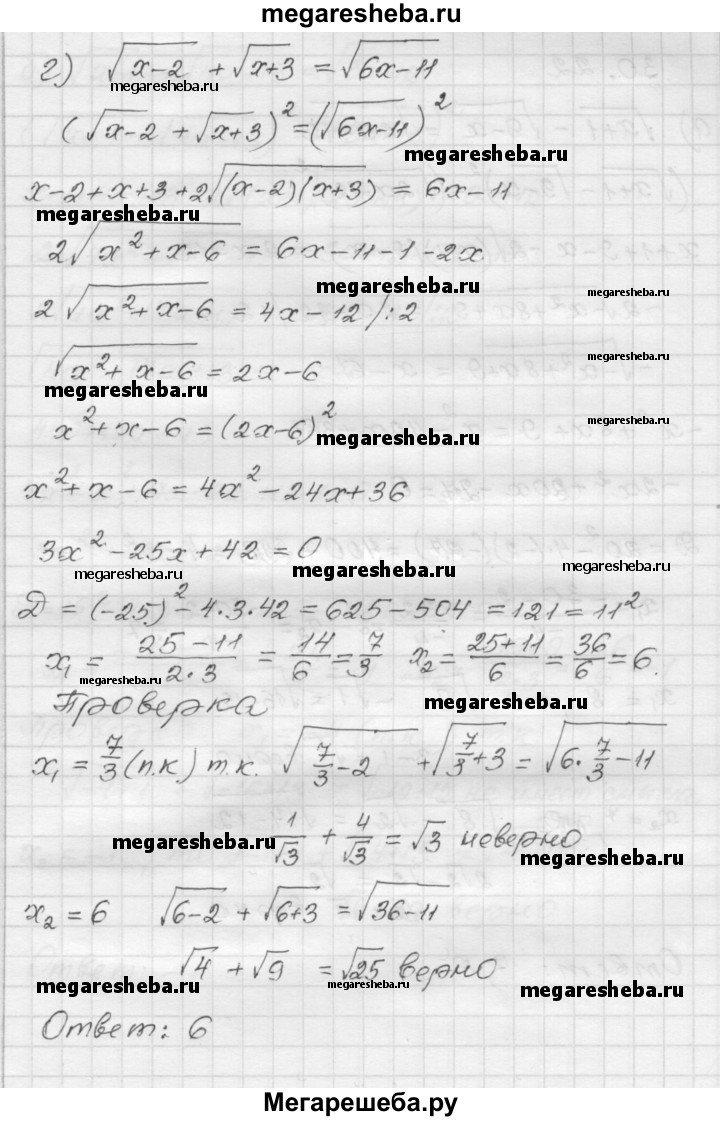 megaresheba.ru
г) √(x-2) + √(x+3) = √(6x-11)
megaresheba.ru
megaresheba.ru
(√x-2 + √x+3)² = (√6x-11)²
megaresheba.ru
x-2+x+3+2√((x-2)(x+3)) = 6x-11
megaresheba.ru
2√(x²+x-6) = 6x-11-1-2x
megaresheba.ru
2√(x²+x-6) = 4x-12 /:2
megaresheba.ru
√(x²+x-6) = 2x-6
megaresheba.ru
megaresheba.ru
x²+x-6 = (2x-6)²
megaresheba.ru
x²+x-6 = 4x²-24x+36
3x²-25x+42=0
megaresheba.ru megaresheba.ru megaresheba.ru
Д = (-25)²-4·3·42 = 625-504 = 121 = 11²
x₁ = (25-11)/(2·3) = 14/6 = 7/3 x₂ = (25+11)/6 = 36/6 = 6.
megaresheba.ru
Проверка
megaresheba.ru
x₁ = 7/3 (п.к) т.к. √(7/3-2) + √(7/3+3) = √(6·7/3-11)
1/√3 + 4/√3 = √3 неверно
megaresheba.ru
megaresheba.ru
x₂ = 6 √(6-2) + √(6+3) = √(36-11)
√4 + √9 = √25 верно
megaresheba.ru
megaresheba.ru
megaresheba.ru
Ответ: 6
Мегарешеба.ру